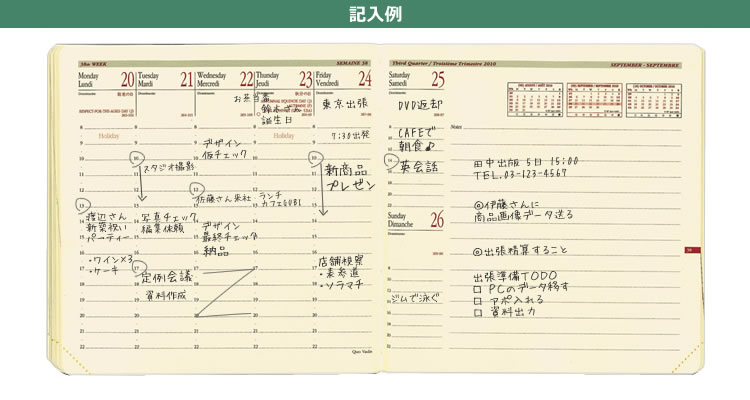 記入例
38th WEEK
SEMAINE 38
Monday
Lundi
20
Tuesday
Mardi
21
Wednesday
Mercredi
22
Thursday
Jeudi
23
Friday
Vendredi
24
RESPECT FOR THE AGED DAY (J)
Holiday
渡辺さん
新築祝い
パーティー
・ワイン×3
・ケーキ
スタジオ撮影
写真チェック
編集依頼
定例会議
資料作成
デザイン
仮チェック
佐藤さん来社
デザイン
最終チェック
納品
お茶当番
誕生日
Holiday
ランチ
東京出張
7:30出発
新商品
プレゼン
店舗視察
・表参道
・ソラマチ
Quo Vadis
Third Quarter / Troisième Trimestre 2010
SEPTEMBER - SEPTEMBRE
Saturday
Samedi
25
DVD返却
CAFEで
朝食♪
英会話
Sunday
Dimanche
26
ジムで泳ぐ
Notes
田中出版 5日 15:00
TEL.03-123-4567
◎伊藤さんに
商品画像データ送る
◎出張精算すること
出張準備TODO
□ PCのデータ移す
□ アポ入れる
□ 資料出力
39